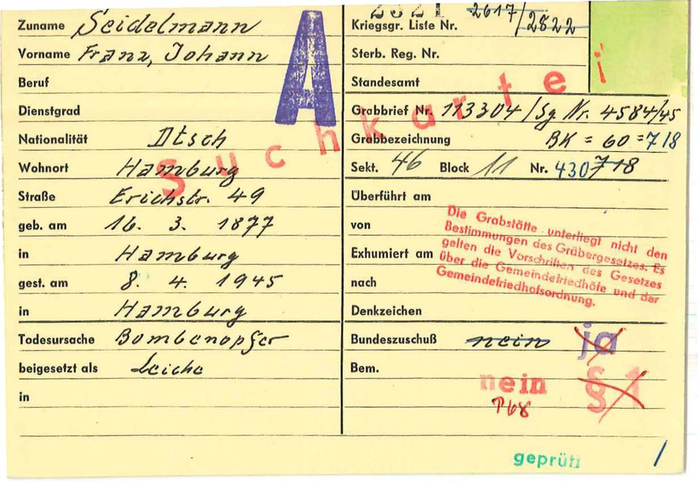 Zuname Seidelmann
Vorname Franz, Johann
Beruf
Dienstgrad
Nationalität Dtsch
Wohnort Hamburg
Straße Erichstr. 49
geb. am 16. 3. 1877
in Hamburg
gest. am 8. 4. 1945
in Hamburg
Todesursache Bombenopfer
beigesetzt als Leiche
in
A
Suchkartei
Kriegsgr. Liste Nr. 2617/2822
Sterb. Reg. Nr.
Standesamt
Grabbrief Nr. 113304/Sg. Nr. 4584/45
Grabbezeichnung BK = 60 = 718
Sekt. 46 Block 11 Nr. 430 718
Überführt am
von
Exhumiert am
nach
Denkzeichen
Die Grabstätte unterliegt nicht den
Bestimmungen des Gräbergesetzes. Es
gelten die Vorschriften des Gesetzes
über die Gemeindefriedhöfe und der
Gemeindefriedhofsordnung.
Bundeszuschuß nein ja
Bem.
nein § 1
geprüft